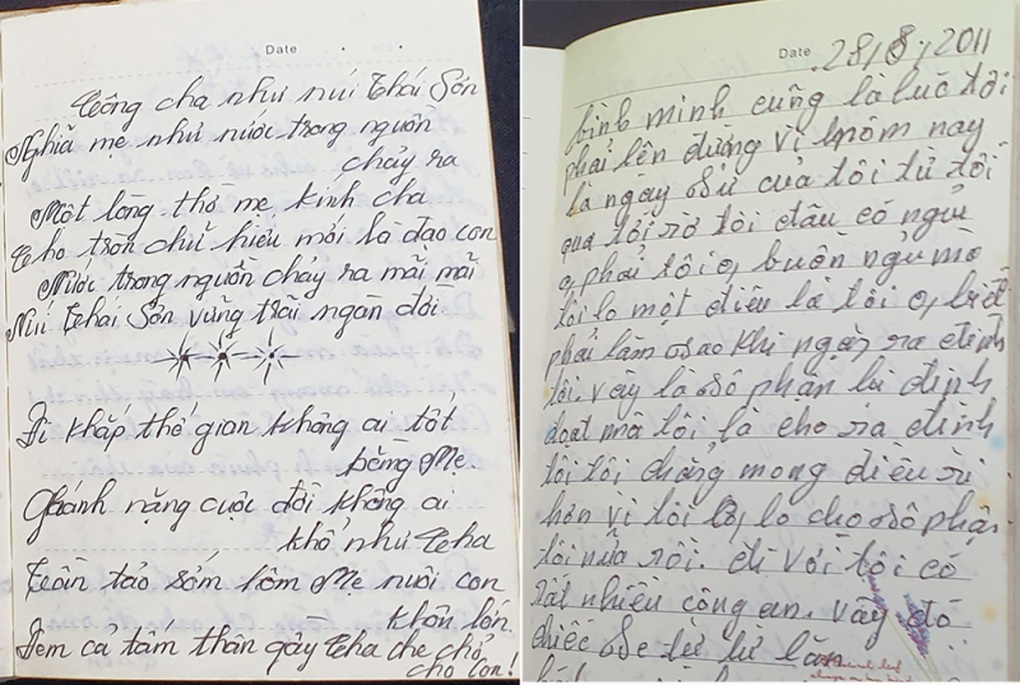 Date
Công cha như núi Thái Sơn
Nghĩa mẹ như nước trong nguồn
chảy ra
Một lòng thờ mẹ kính cha
Cho tròn chữ hiếu mới là đạo con
Nước trong nguồn chảy ra mãi mãi
Núi Thái Sơn vững trãi ngàn đời
Đi khắp thế gian không ai tốt
bằng Mẹ.
Gánh nặng cuộc đời không ai
khổ như Cha
Tần tảo sớm hôm Mẹ nuôi con
khôn lớn.
Đem cả tấm thân gầy Cha che chở
cho con!
Date 28/8/2011
bình minh cũng là lúc tôi
phải lên đường vì hôm nay
là ngày sử của tôi từ tối
qua tới giờ tôi đâu có ngủ
phải tôi buồn ngủ mà
tôi lo một điều là tôi biết
phải làm sao khi ngày ra đình
tôi. vậy là số phận lại định
đoạt mà tôi là cho ra đình
tôi tôi chẳng mong điều ri
hơn vì tôi lo cho số phận
tôi nữa rồi. đi với tôi có
rất nhiều công an. vậy đó
chiếc se từ từ lăn